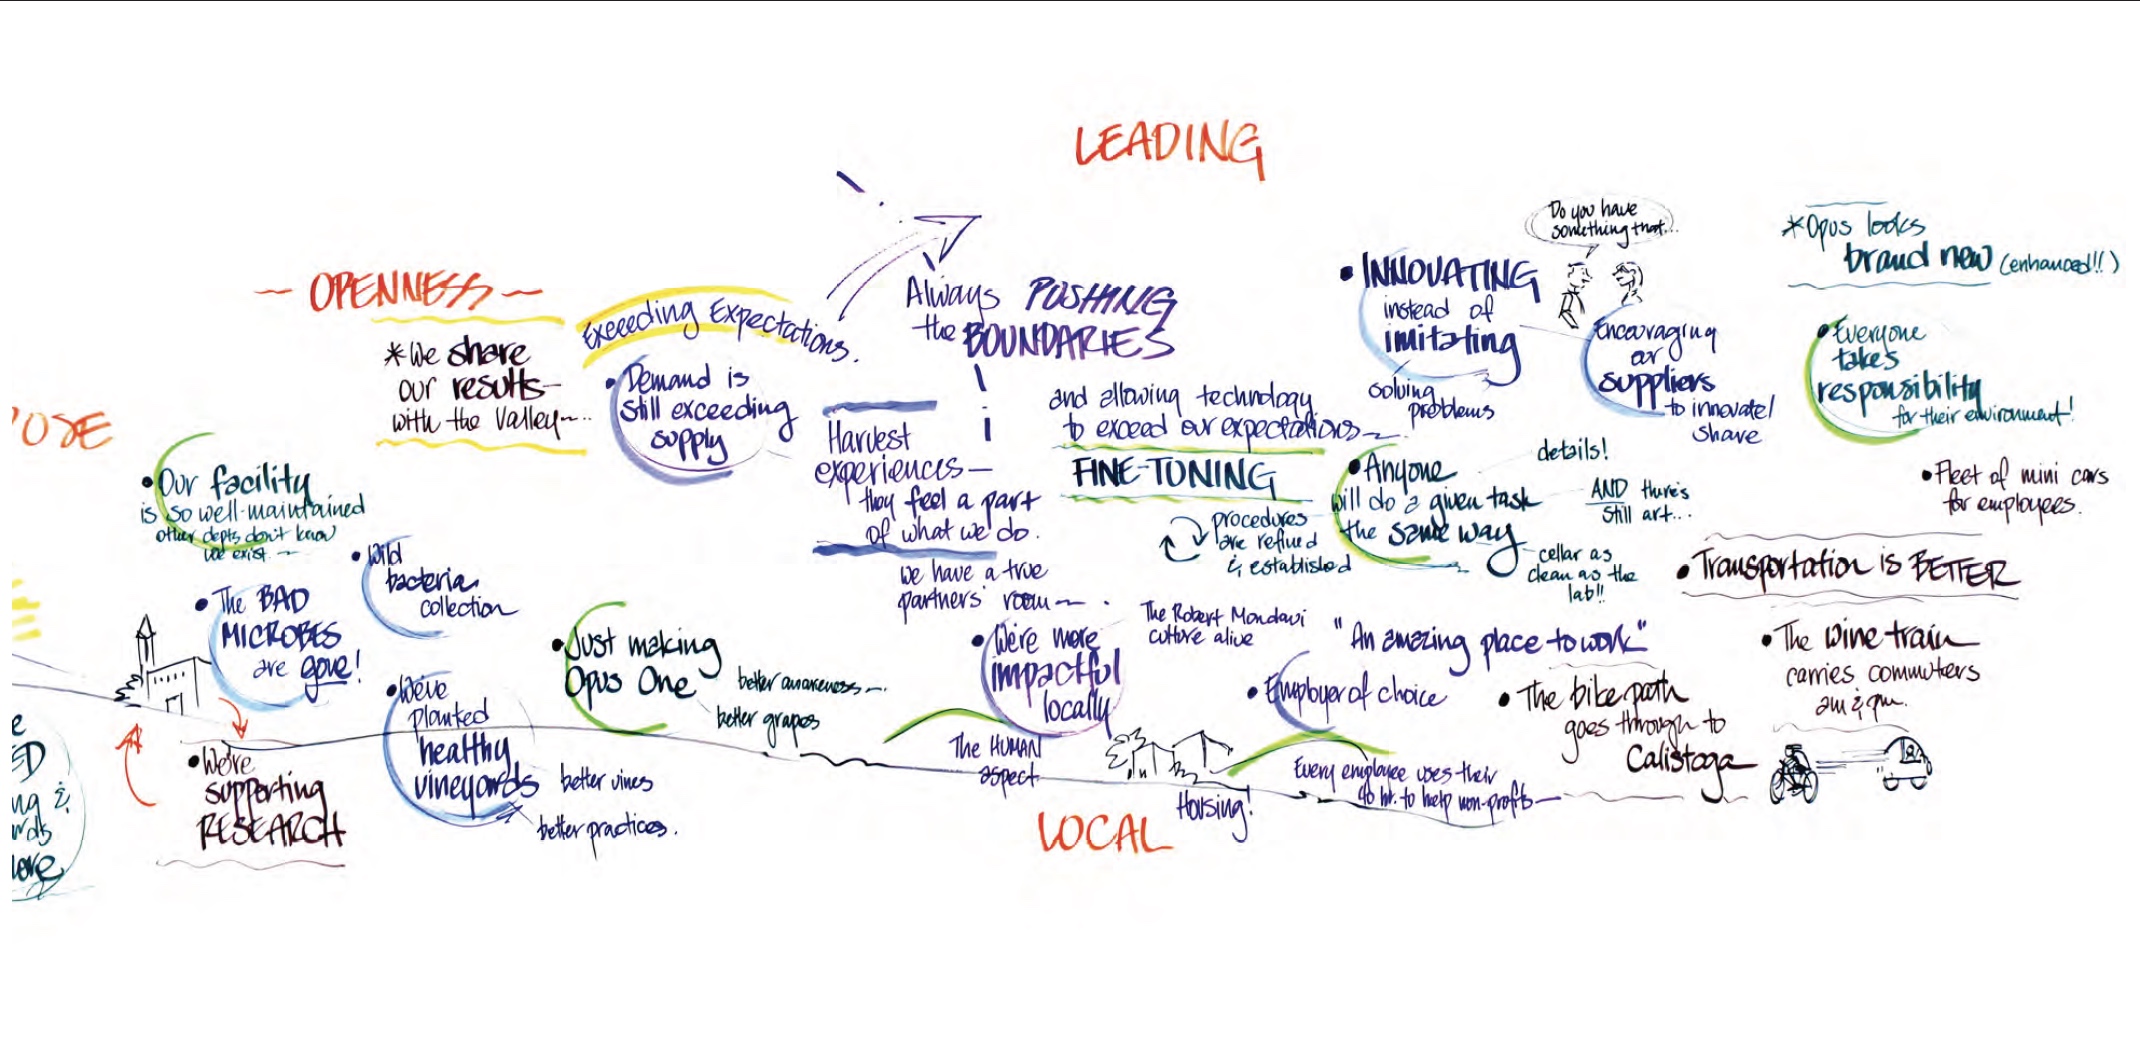 LEADING
- OPENNESS -
*We share
our results-
with the Valley-...
Exceeding Expectations.
• Demand is
still exceeding
supply
Always PUSHING
the BOUNDARIES
and allowing technology
to exceed our expectations-
Harvest
experiences-
they feel a part
of what we do.
we have a true
partners' room- .
FINE-TUNING
procedures
are refined
& established
• INNOVATING
instead of
imitating
solving
problems
Do you have
something that...
Encouraging
our
suppliers
to innovate/
share
*Opus looks
brand new (enhanced!!)
• Everyone
takes
responsibility
for their environment!
• Anyone
will do a given task
the same way
details!
AND there's
still art...
cellar as
clean as the
lab!!
• Fleet of mini cars
for employees.
• Transportation is BETTER
• The wine train
carries commuters
am & pm.
• The bike path
goes through to
Calistoga
OSE
• Our facility
is so well-maintained
other depts don't know
we exist. -
• Wild
bacteria
collection
• The BAD
MICROBES
are gone!
• We're
supporting
RESEARCH
• We've
planted
healthy
vineyards
better vines
better practices.
• Just making
Opus One
better awareness-..
better grapes
• We're more
impactful
locally
The Robert Mondavi
culture alive
"An amazing place to work"
• Employer of choice
The HUMAN
aspect
Housing!
Every employee uses their
40 hr. to help non-profits-
LOCAL